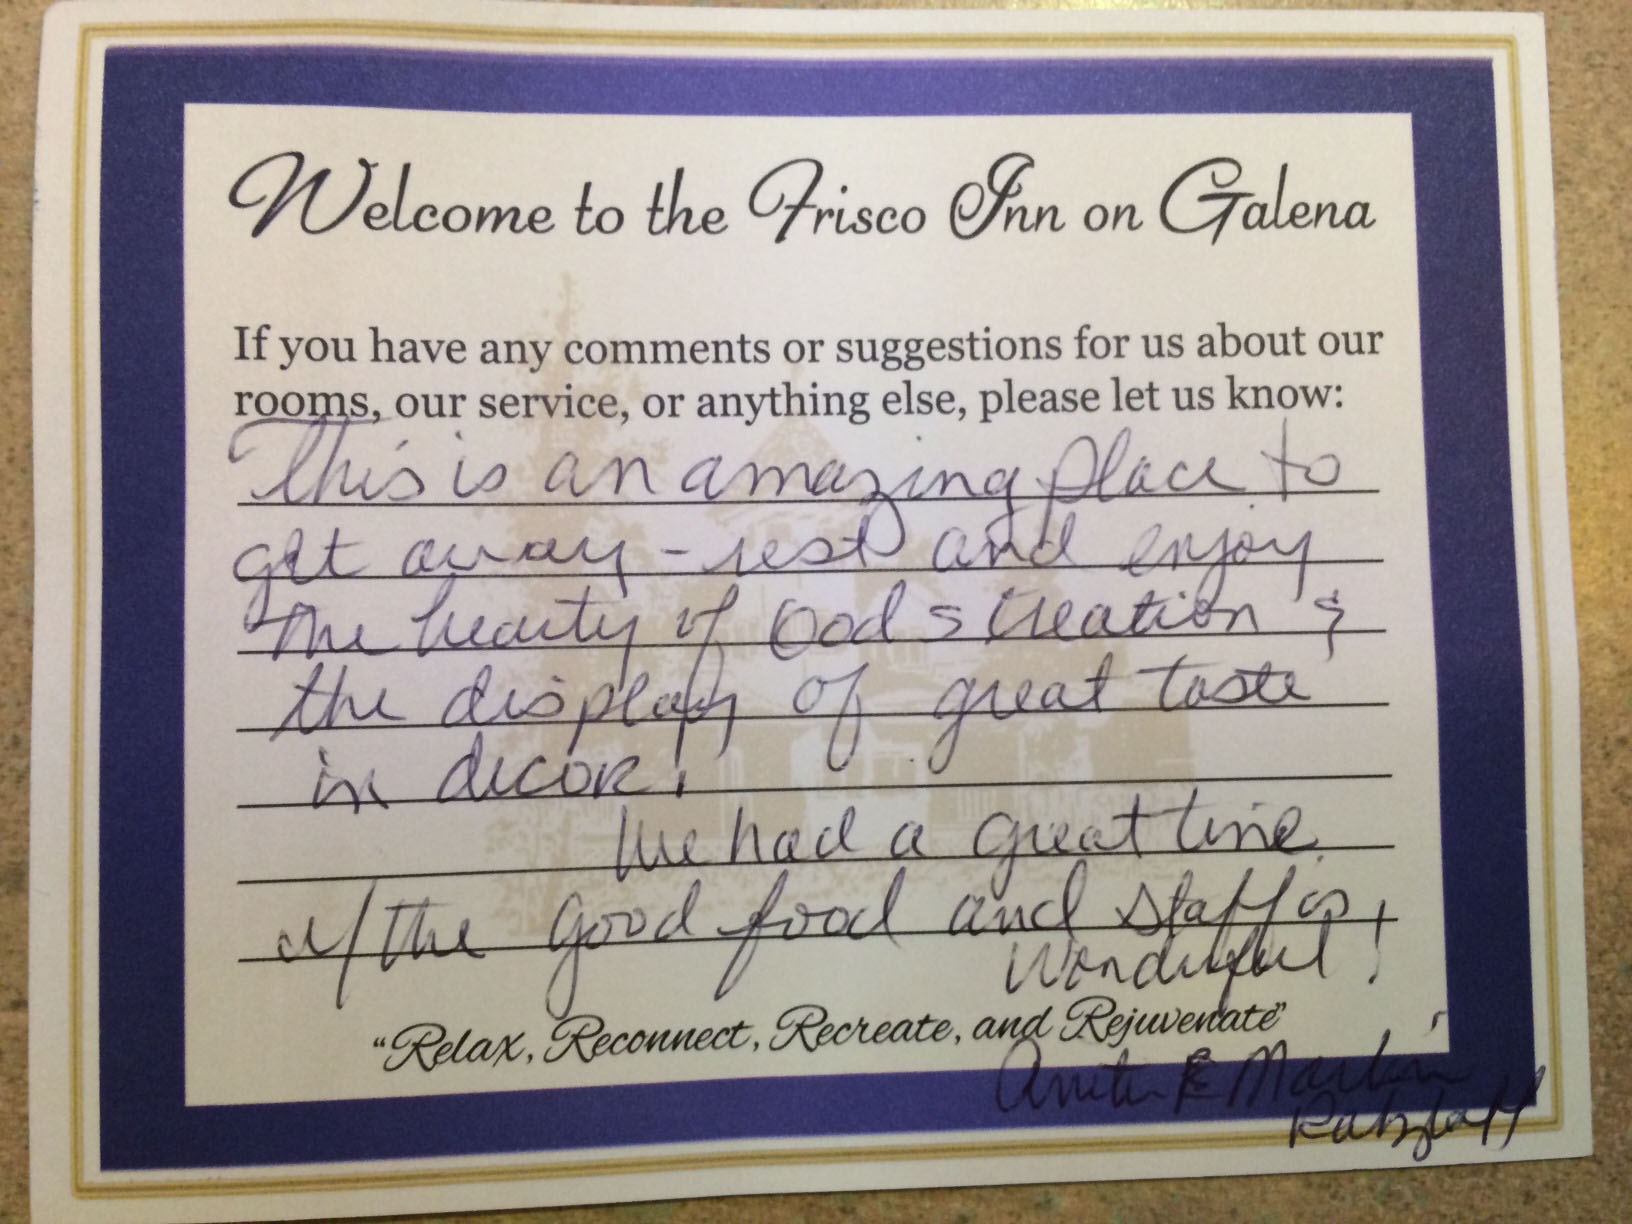 Welcome to the Frisco Inn on Galena
If you have any comments or suggestions for us about our
rooms, our service, or anything else, please let us know:
This is an amazing place to
get away - rest and enjoy
the beauty of Gods creation &
the display of great taste
in decor!
We had a great time
w/ the good food and staff is
wonderful!
"Relax, Reconnect, Recreate, and Rejuvenate"
Anita & Martin
Ratzlaff